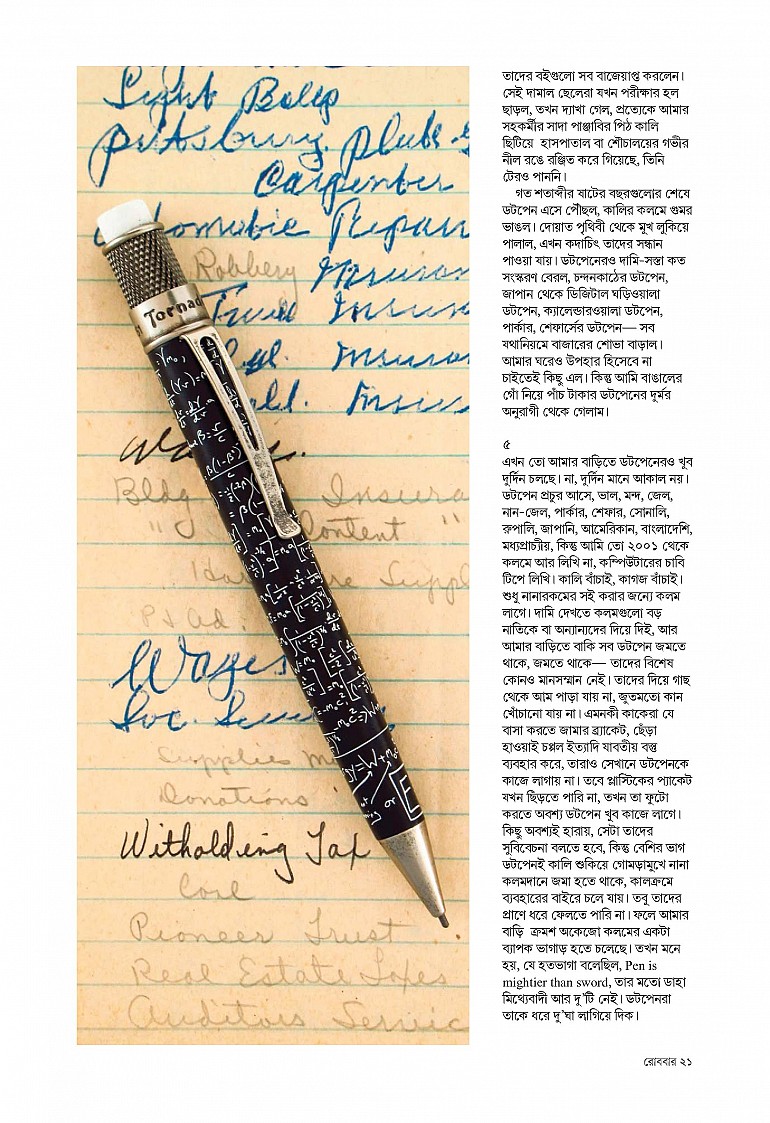 Light Bulbs
Pittsburg. Plate
Carpenter
Automobile Repair
Robbery Insuran
Insuran
Insuran
Insu
Bldg Insura
" Content "
Suppl
Wages
Soc.
Supplies
Donations
Witholding Tax
Coal
Pioneer Trust
Real Estate Taxes
Auditors Servic
Tornad
তাদের বইগুলো সব বাজেয়াপ্ত করলেন।
সেই দামাল ছেলেরা যখন পরীক্ষার হল
ছাড়ল, তখন দ্যাখা গেল, প্রত্যেকে আমার
সহকর্মীর সাদা পাঞ্জাবির পিঠ কালি
ছিটিয়ে হাসপাতাল বা শৌচালয়ের গভীর
নীল রঙে রঞ্জিত করে গিয়েছে, তিনি
টেরও পাননি।
গত শতাব্দীর ষাটের বছরগুলোর শেষে
ডটপেন এসে পৌঁছল, কালির কলমে গুমর
ভাঙল। দোয়াত পৃথিবী থেকে মুখ লুকিয়ে
পালাল, এখন কদাচিৎ তাদের সন্ধান
পাওয়া যায়। ডটপেনেরও দামি-সস্তা কত
সংস্করণ বেরল, চন্দনকাঠের ডটপেন,
জাপান থেকে ডিজিটাল ঘড়িওয়ালা
ডটপেন, ক্যালেন্ডারওয়ালা ডটপেন,
পার্কার, শেফার্সের ডটপেন— সব
যথানিয়মে বাজারের শোভা বাড়াল।
আমার ঘরেও উপহার হিসেবে না
চাইতেই কিছু এল। কিন্তু আমি বাঙালের
গোঁ নিয়ে পাঁচ টাকার ডটপেনের দুর্মর
অনুরাগী থেকে গেলাম।
৫
এখন তো আমার বাড়িতে ডটপেনেরও খুব
দুর্দিন চলছে। না, দুর্দিন মানে আকাল নয়।
ডটপেন প্রচুর আসে, ভাল, মন্দ, জেল,
নান-জেল, পার্কার, শেফার, সোনালি,
রুপালি, জাপানি, আমেরিকান, বাংলাদেশি,
মধ্যপ্রাচ্যীয়, কিন্তু আমি তো ২০০১ থেকে
কলমে আর লিখি না, কম্পিউটারের চাবি
টিপে লিখি। কালি বাঁচাই, কাগজ বাঁচাই।
শুধু নানারকমের সই করার জন্যে কলম
লাগে। দামি দেখতে কলমগুলো বড়
নাতিকে বা অন্যান্যদের দিয়ে দিই, আর
আমার বাড়িতে বাকি সব ডটপেন জমতে
থাকে, জমতে থাকে— তাদের বিশেষ
কোনও মানসম্মান নেই। তাদের দিয়ে গাছ
থেকে আম পাড়া যায় না, জুতমতো কান
খোঁচানো যায় না। এমনকী কাকেরা যে
বাসা করতে জামার ব্র্যাকেট, ছেঁড়া
হাওয়াই চপ্পল ইত্যাদি যাবতীয় বস্তু
ব্যবহার করে, তারাও সেখানে ডটপেনকে
কাজে লাগায় না। তবে প্লাস্টিকের প্যাকেট
যখন ছিঁড়তে পারি না, তখন তা ফুটো
করতে অবশ্য ডটপেন খুব কাজে লাগে।
কিছু অবশ্যই হারায়, সেটা তাদের
সুবিবেচনা বলতে হবে, কিন্তু বেশির ভাগ
ডটপেনই কালি শুকিয়ে গোমড়ামুখে নানা
কলমদানে জমা হতে থাকে, কালক্রমে
ব্যবহারের বাইরে চলে যায়। তবু তাদের
প্রাণে ধরে ফেলতে পারি না। ফলে আমার
বাড়ি ক্রমশ অকেজো কলমের একটা
ব্যাপক ভাগাড় হতে চলেছে। তখন মনে
হয়, যে হতভাগা বলেছিল, Pen is
mightier than sword, তার মতো ডাহা
মিথ্যেবাদী আর দু'টি নেই। ডটপেনরা
তাকে ধরে দু'ঘা লাগিয়ে দিক।
রোববার ২১